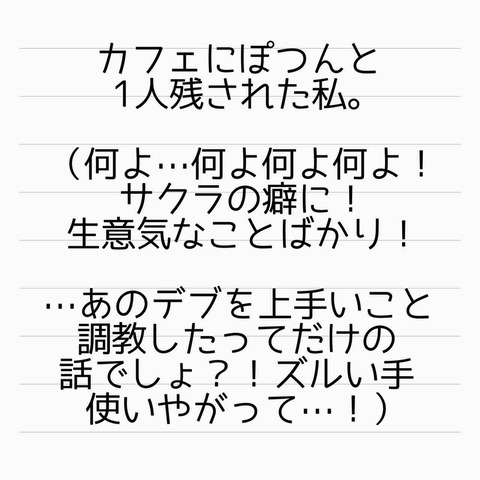 カフェにぽつんと
1人残された私。
（何よ…何よ何よ何よ！
サクラの癖に！
生意気なことばかり！
…あのデブを上手いこと
調教したってだけの
話でしょ？！ズルい手
使いやがって…！）